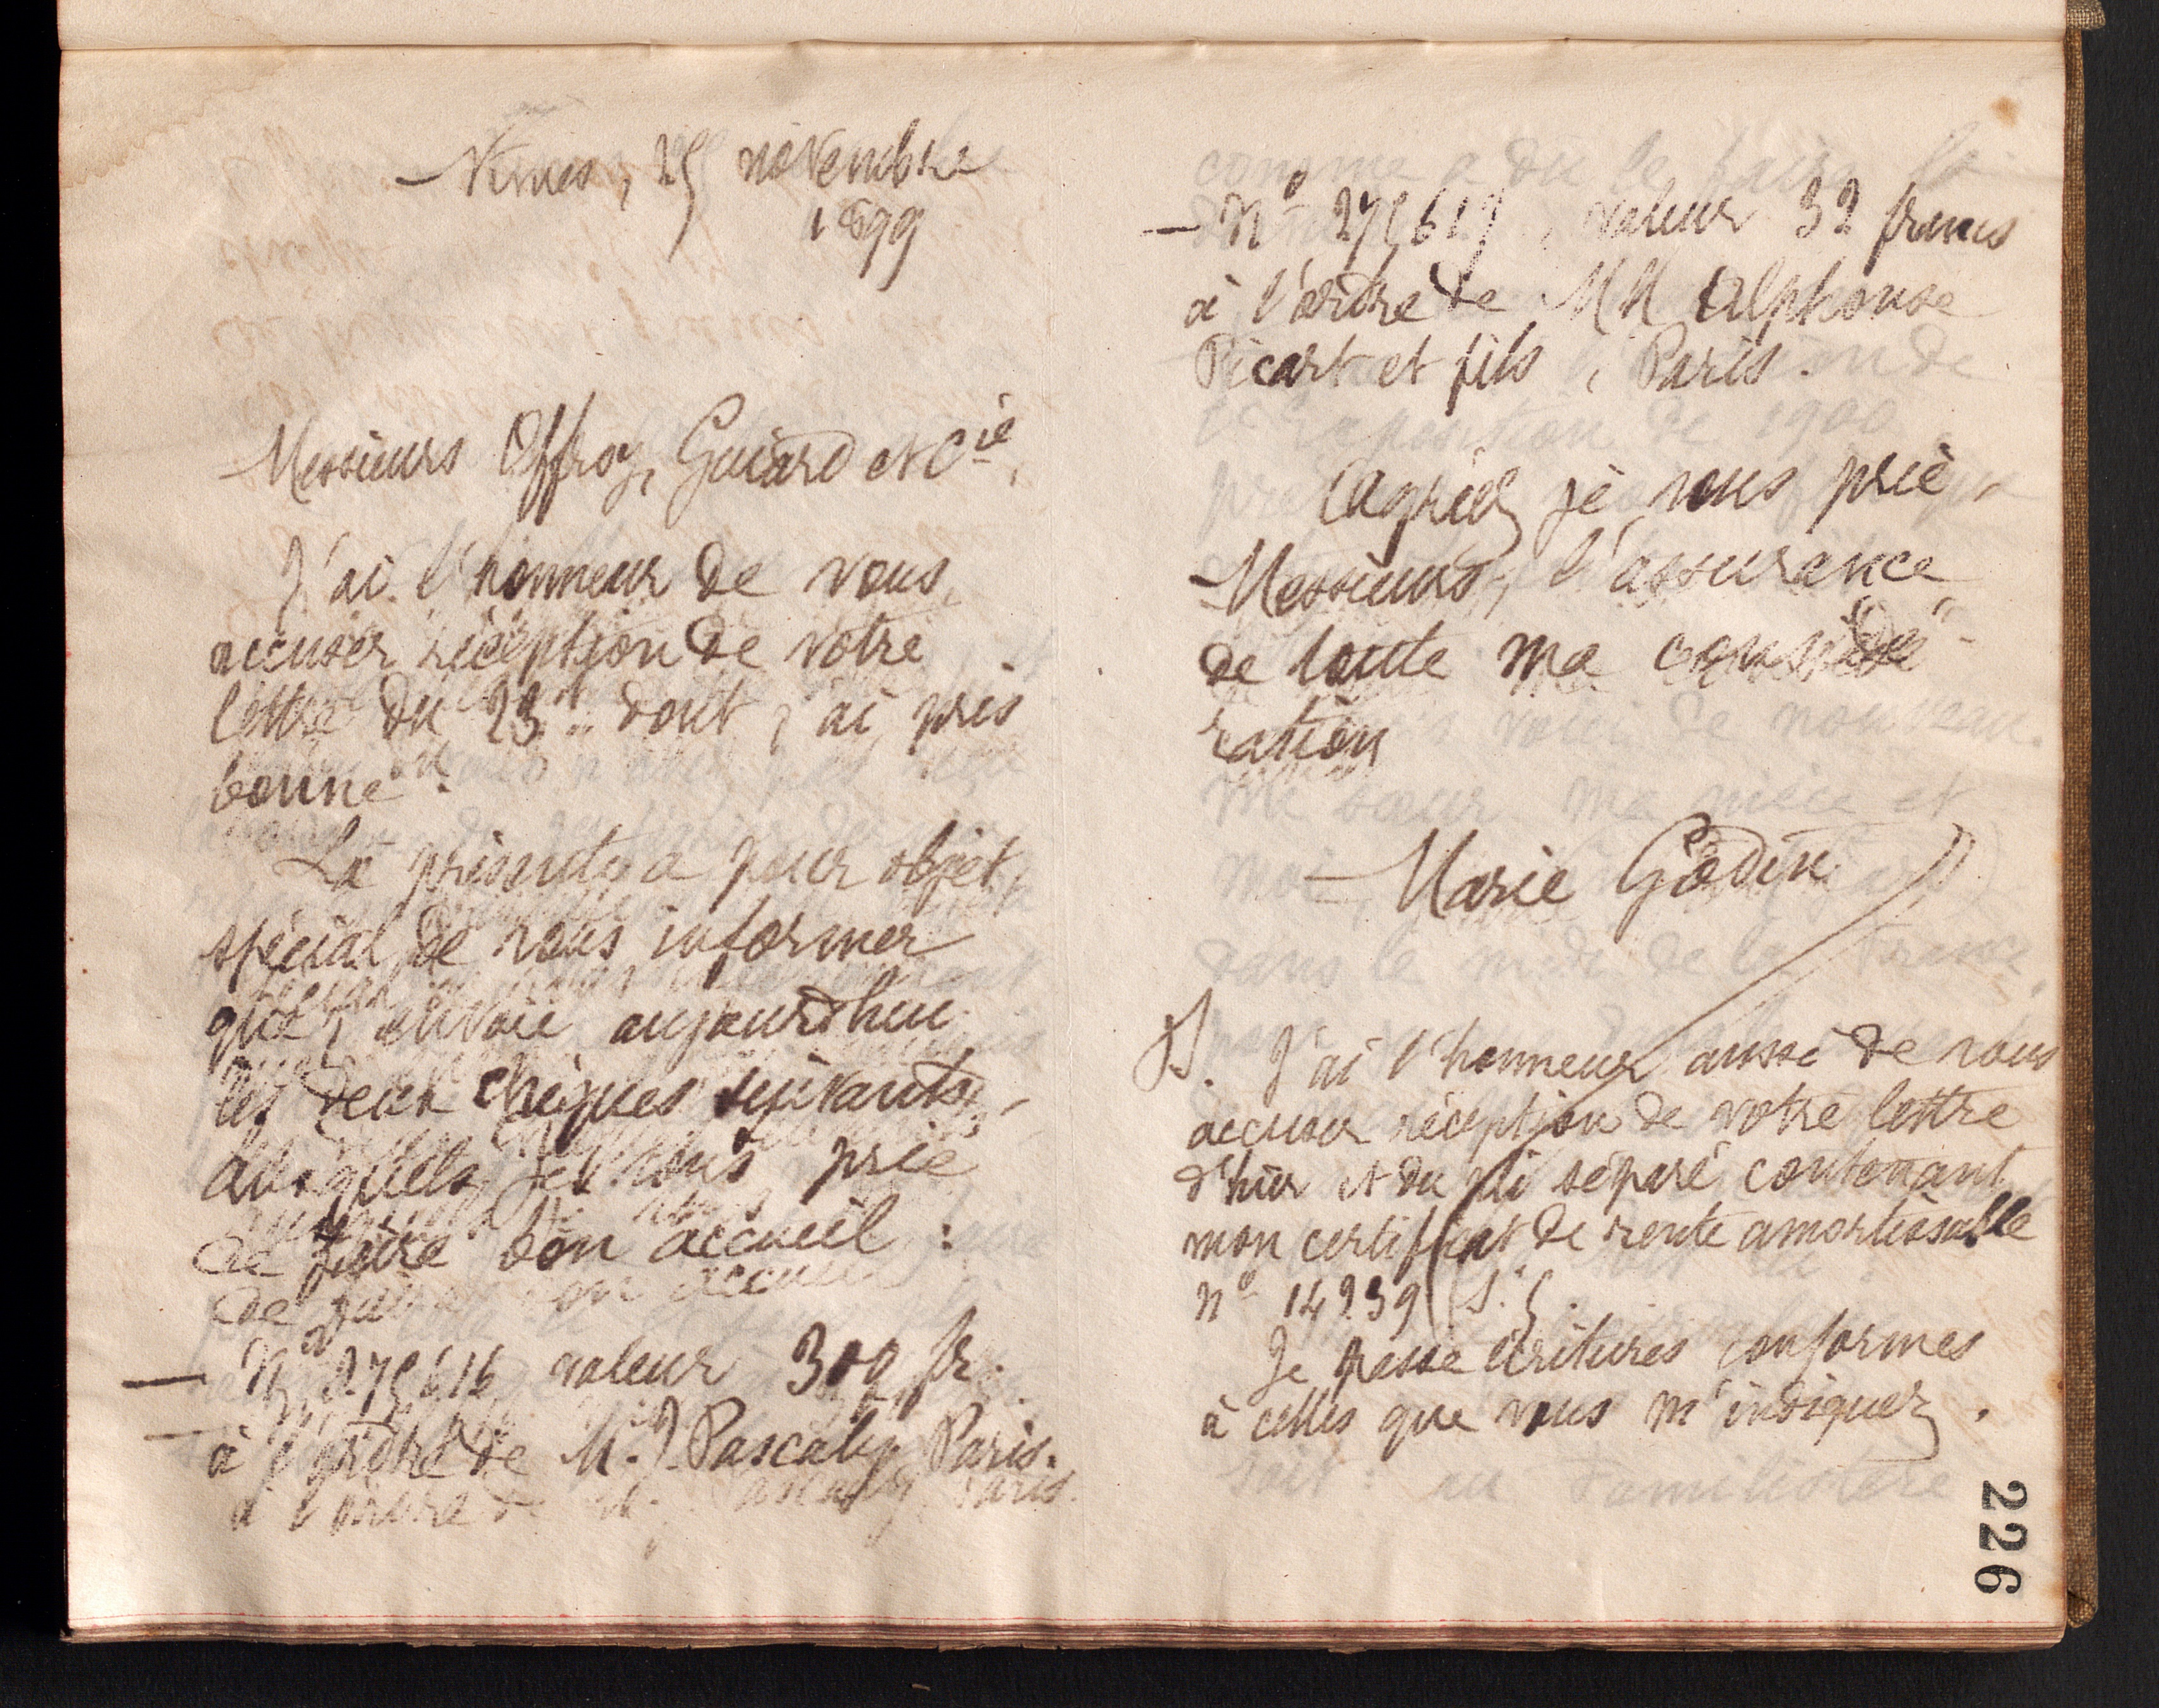 Nimes, 25 novembre
1899
Messieurs Offroy, Guiard et Cie,
J'ai l'honneur de vous
accuser réception de votre
lettre du 23 dont j'ai pris
bonne
La présente a pour objet
spécial de vous informer
que j'envoie aujourd'hui
les deux chèques suivants,
auxquels je vous prie
de faire bon accueil :
— N° 275616 valeur 300 fr.
à l'ordre de M. J. Pascaly, Paris.
— N° 275617, valeur 32 francs
à l'ordre de MM Alphonse
Picart et fils, Paris.
Agréez je vous prie,
Messieurs, l'assurance
de toute ma considé-
ration
Marie Godin
PS. J'ai l'honneur aussi de vous
accuser réception de votre lettre
d'hier et du pli séparé contenant
mon certificat de rente amortissable
n° 14239
Je passe écritures conformes
à celles que vous m'indiquez.
226